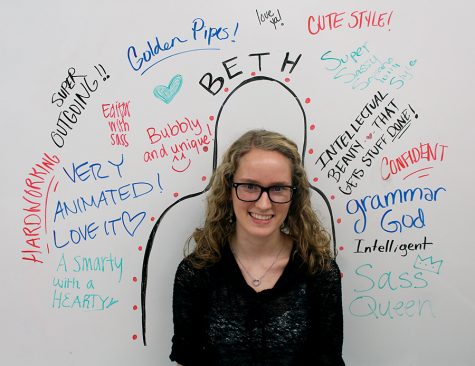 love ya!
CUTE STYLE!
Golden Pipes!
BETH
Super
Sassy
SUPER
OUTGOING!!
Editor
with
sass
Bubbly
and unique!
INTELLECTUAL
BEAUTY THAT
GETS STUFF DONE!
CONFIDENT
HARDWORKING
VERY
ANIMATED!
LOVE IT
grammar
God
Intelligent
A smarty
with a
HEARTY
Sass
Queen